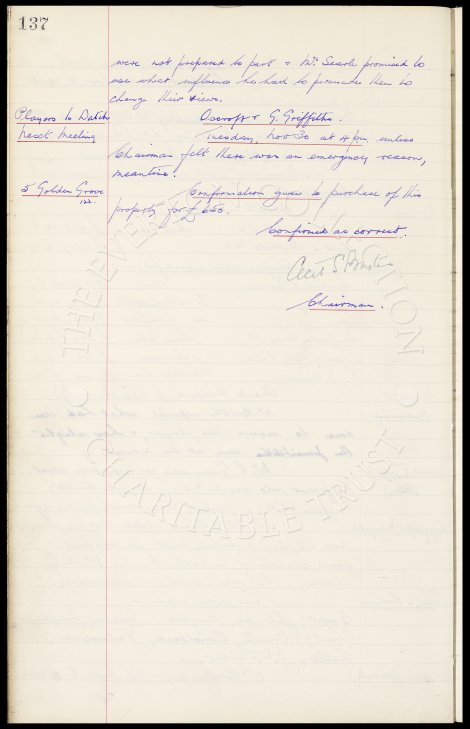 137
were not prepared to part & Mr. Searle promised to
use what influence he had to persuade them to
change their views.
Players to Watch
Oscroft & G. Griffiths.
Next Meeting
Tuesday, Nov 30 at 4 pm unless
Chairman felt there was an emergency reason,
meantime.
5 Golden Grove
Confirmation given to purchase of this
property for £650.
Confirmed as correct.
Cecil S Baxter
Chairman.
THE EVERTON COLLECTION
CHARITABLE TRUST